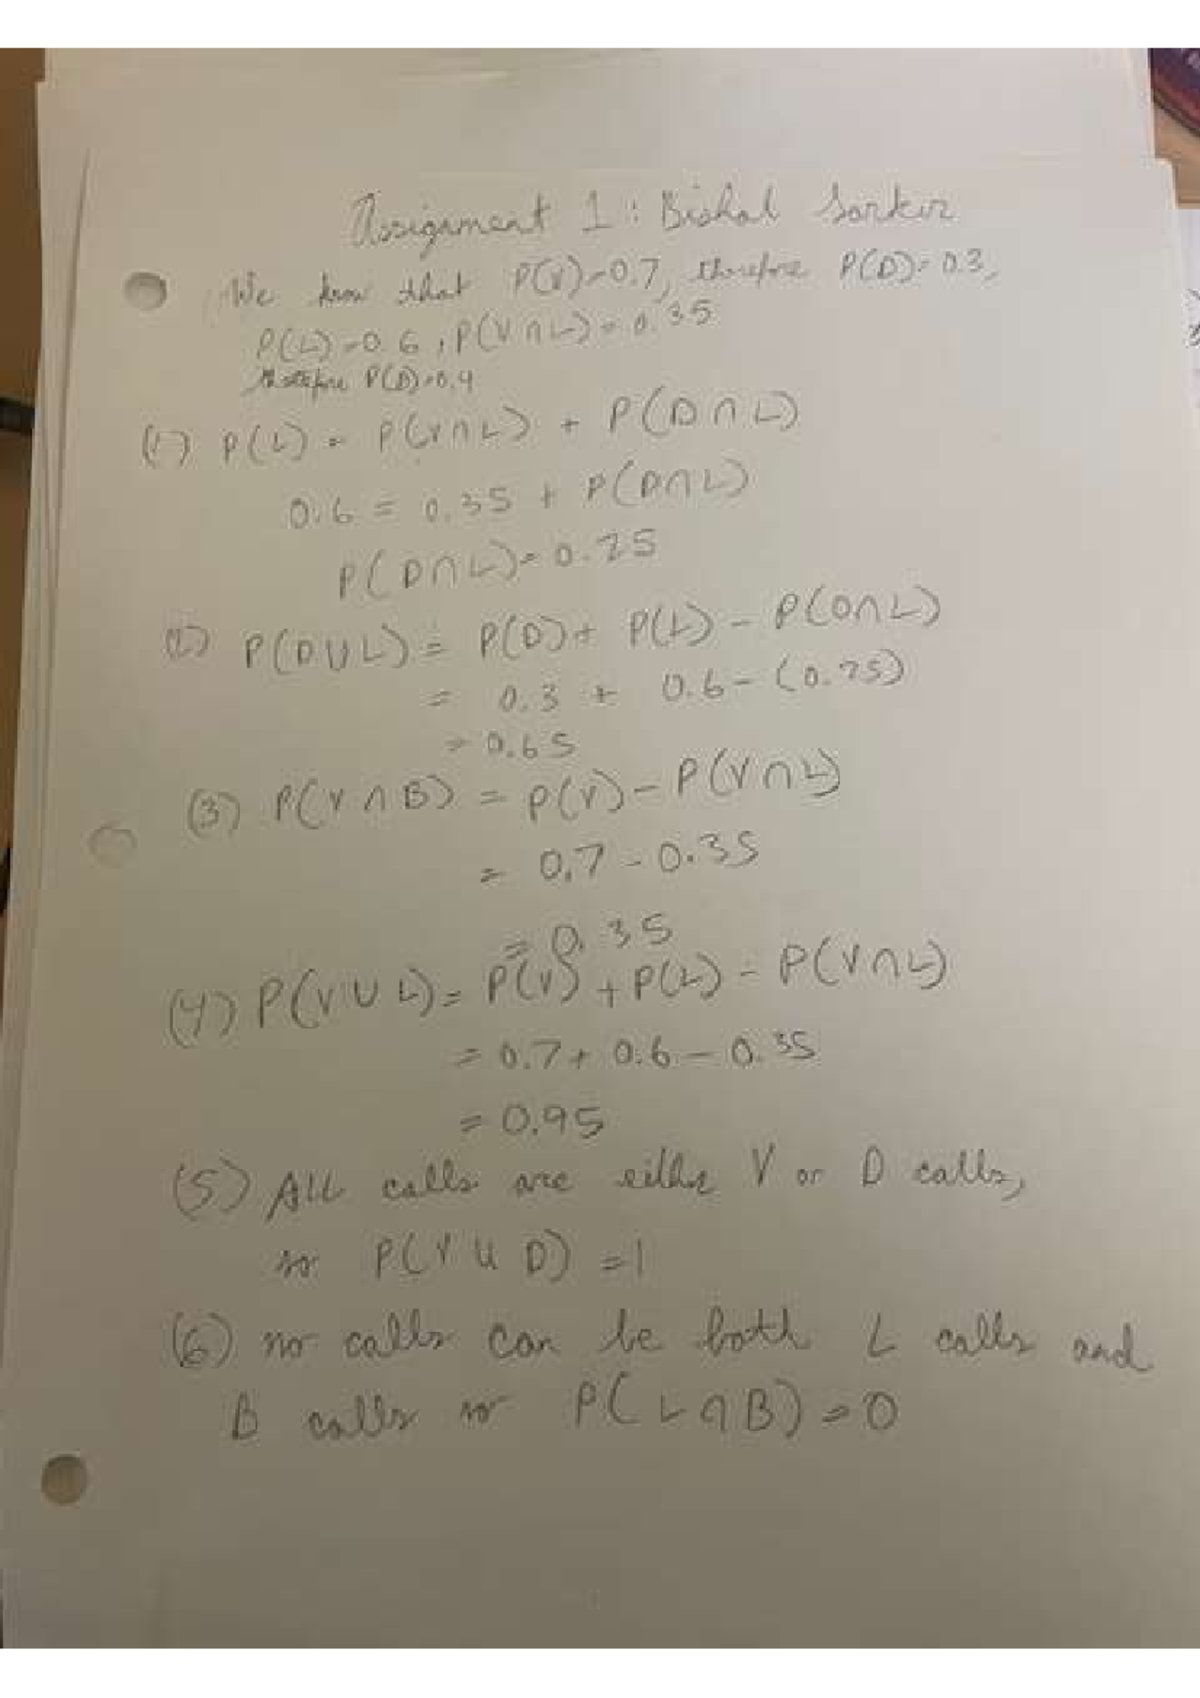 Assignment 1: Bishal Sarkar
We know that P(V)=0.7, therefore P(D)=0.3,
P(L)=0.6, P(V∩L)=0.35
therefore P(B)=0.4
(1) P(L) = P(V∩L) + P(D∩L)
0.6 = 0.35 + P(D∩L)
P(D∩L)=0.25
(2) P(D∪L) = P(D)+ P(L) - P(D∩L)
= 0.3 + 0.6 - (0.25)
= 0.65
(3) P(V∩B) = P(V) - P(V∩L)
= 0.7 - 0.35
= 0.35
(4) P(V∪L) = P(V) + P(L) - P(V∩L)
= 0.7 + 0.6 - 0.35
= 0.95
(5) All calls are either V or D calls,
so P(V∪D) = 1
(6) no calls can be both L calls and
B calls so P(L∩B)=0